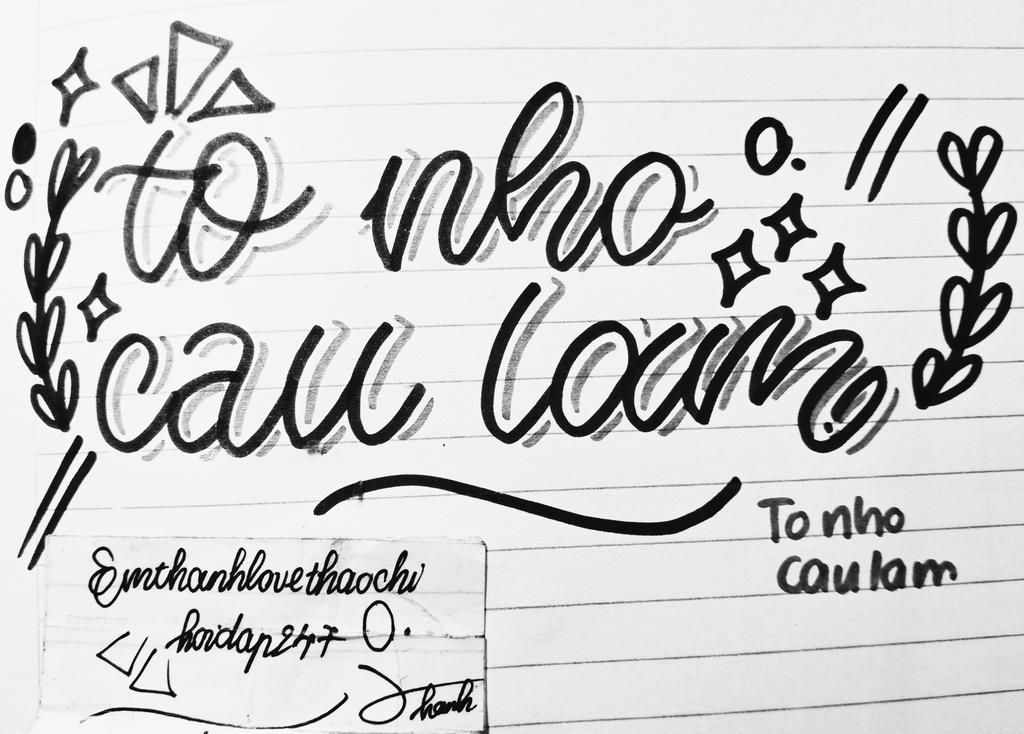 to nho
cau lam
To nho
cau lam
Emthanhlovethaochi
hoidap247
Thanh